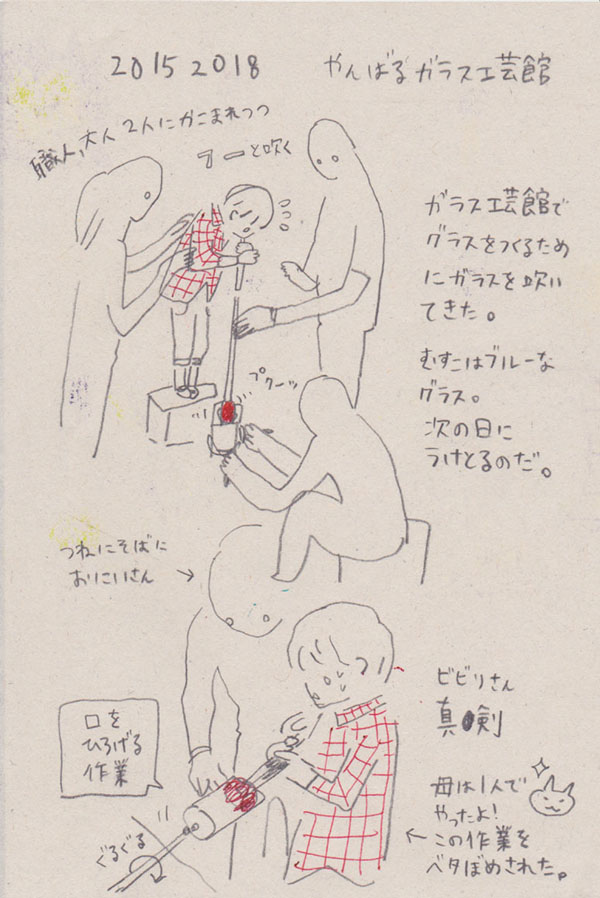 2015 2018
やんばるガラス工芸館
職人、大人2人にかこまれつつ
フーーと吹く
ガラス工芸館で
グラスをつくるため
にガラスを吹い
てきた。
むすこはブルーな
グラス。
次の日に
うけとるのだ。
プクーッ
つねにそばに
おにいさん
ビビリさん
真剣
口を
ひろげる
作業
ぐるぐる
母は1人で
やったよ!
この作業を
ベタぼめされた。